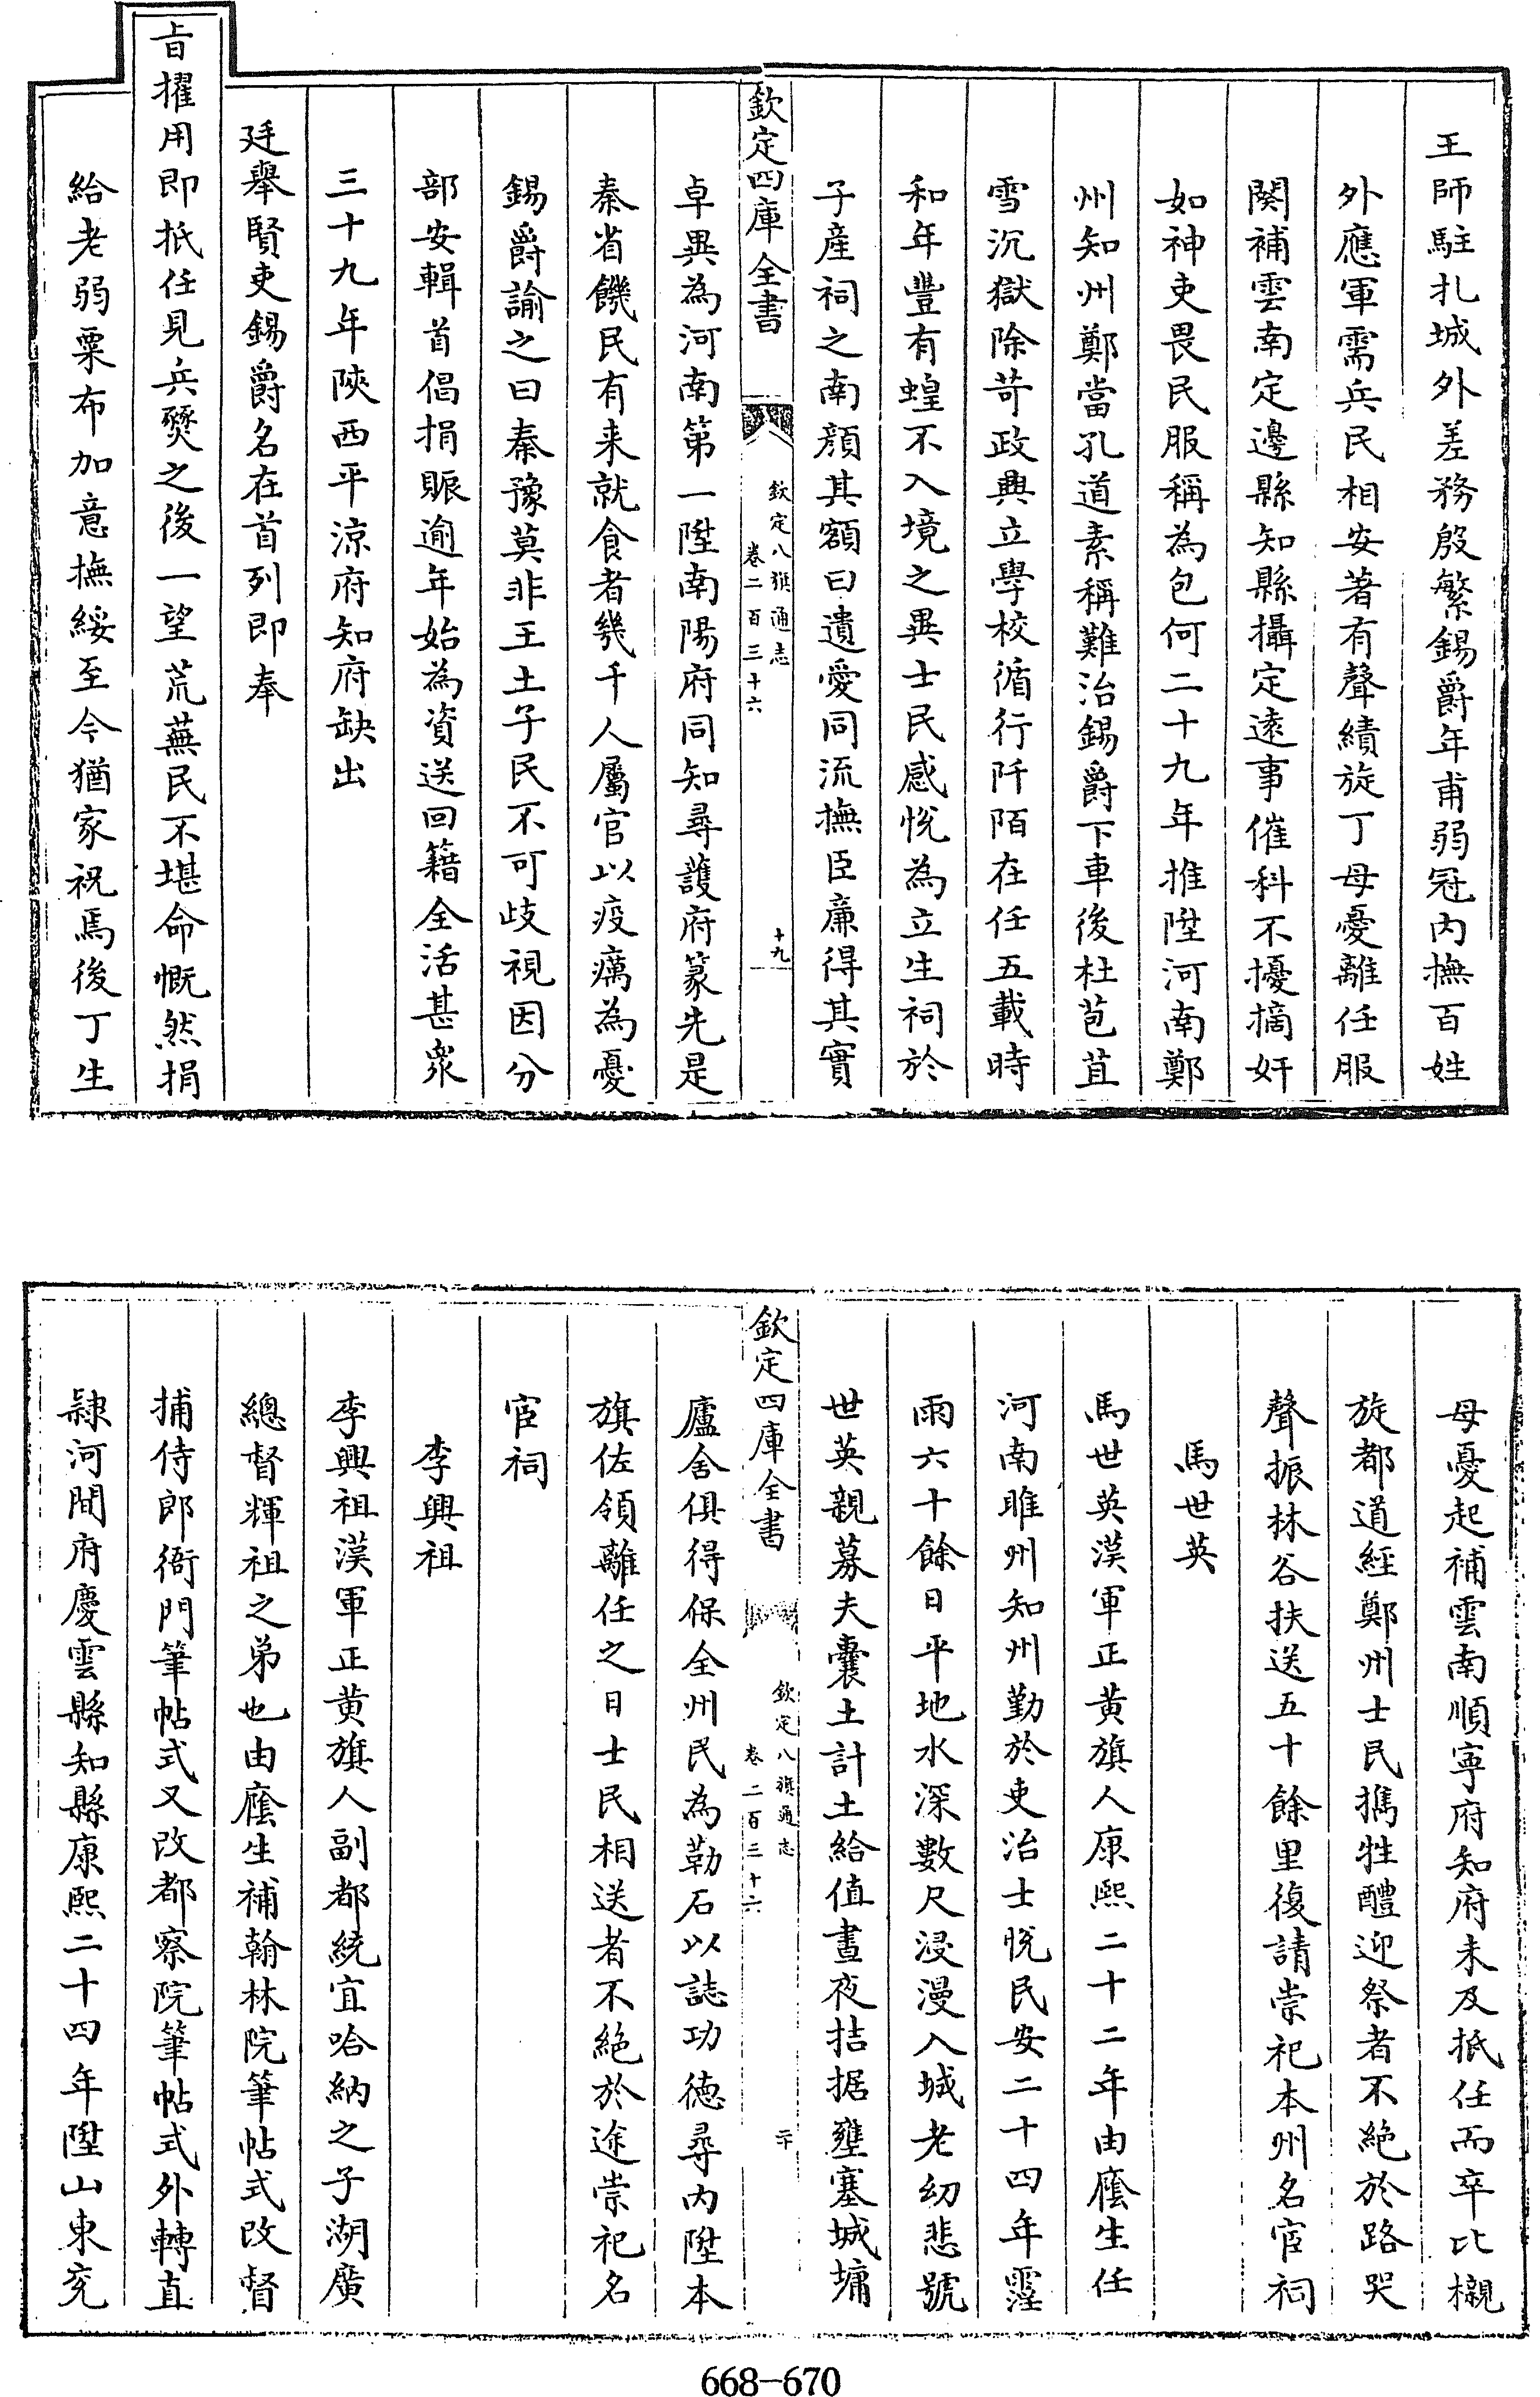 王師駐扎城外差務殷繁錫爵年甫弱冠内撫百姓
外應軍需兵民相安著有聲績旋丁母憂離任服
闋補雲南定邊縣知縣攝定遠事催科不擾摘奸
如神吏畏民服稱為包何二十九年推陞河南鄭
州知州鄭當孔道素稱難治錫爵下車後杜苞苴
雪沉獄除苛政興立學校循行阡陌在任五載時
和年豐有蝗不入境之異士民感悅為立生祠於
子產祠之南顏其額曰遺愛同流撫臣廉得其實
欽定四庫全書
欽定八旗通志
卷二百三十六
十九
卓異為河南第一陞南陽府同知尋護府篆先是
秦省饑民有来就食者幾千人屬官以疫癘為憂
錫爵諭之曰秦豫莫非王土子民不可歧視因分
部安輯首倡捐賑逾年始為資送回籍全活甚衆
三十九年陝西平涼府知府缺出
廷舉賢吏錫爵名在首列即奉
旨擢用即抵任見兵燹之後一望荒蕪民不堪命慨然捐
給老弱粟布加意撫綏至今猶家祝焉後丁生
母憂起補雲南順寧府知府未及抵任而卒比櫬
旋都道經鄭州士民攜牲醴迎祭者不絶於路哭
聲振林谷扶送五十餘里復請崇祀本州名宦祠
馬世英
馬世英漢軍正黃旗人康熙二十二年由廕生任
河南睢州知州勤於吏治士悅民安二十四年霪
雨六十餘日平地水深數尺浸漫入城老幼悲號
世英親募夫囊土計土給值晝夜拮据壅塞城墉
欽定四庫全書
欽定八旗通志
卷二百三十六
二十
廬舍俱得保全州民為勒石以誌功德尋内陞本
旗佐領離任之日士民相送者不絶於途崇祀名
宦祠
李興祖
李興祖漢軍正黃旗人副都統宜哈納之子湖廣
總督輝祖之弟也由廕生補翰林院筆帖式改督
捕侍郎衙門筆帖式又改都察院筆帖式外轉直
隸河間府慶雲縣知縣康熙二十四年陞山東兖
668-670